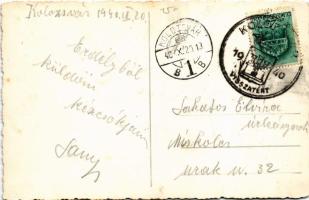 Kolozsvár 1940. IX. 20.
Erdélyből
küldöm
kézcsókjaim
Sany
KOLOZSVÁR
1
B B
19 40
VISSZATÉRT
Sakatos Elvira
Miskolc
urak u. 32